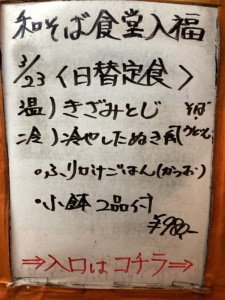 和そば食堂入福
3/23〈日替定食〉
温)きざみとじ そば
冷)冷やしたぬき 又はうどん
・ふりかけごはん(かつお)
・小鉢2品付
¥980-
⇒入口はコチラ⇒